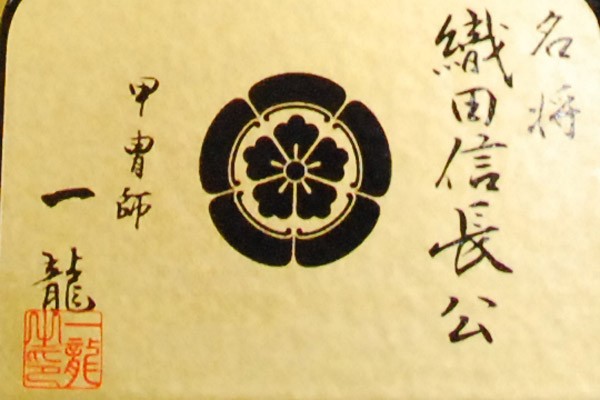 名将
織田信長公
甲冑師
一龍
一龍
之印